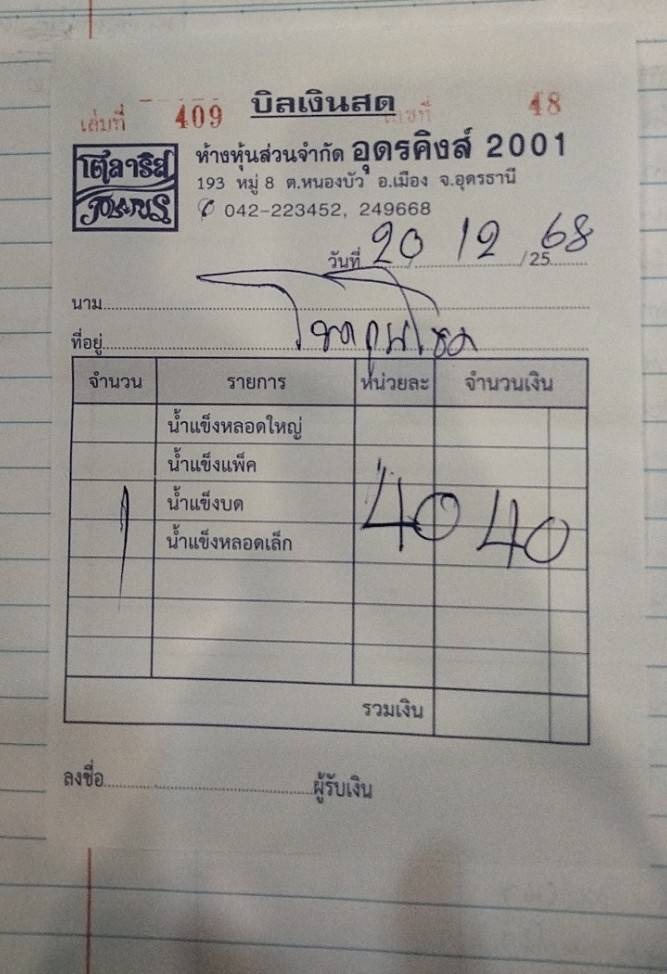 บิลเงินสด
เล่มที่ 409 เลขที่ 48
โตลาริส
ห้างหุ้นส่วนจำกัด อุดรคิงส์ 2001
193 หมู่ 8 ต.หนองบัว อ.เมือง จ.อุดรธานี
042-223452, 249668
วันที่ 20 / 12 / 25 68
นาม
ที่อยู่
จำนวน รายการ หน่วยละ จำนวนเงิน
น้ำแข็งหลอดใหญ่
น้ำแข็งแพ็ค
1 น้ำแข็งบด 40 40
น้ำแข็งหลอดเล็ก
รวมเงิน
ลงชื่อ ผู้รับเงิน